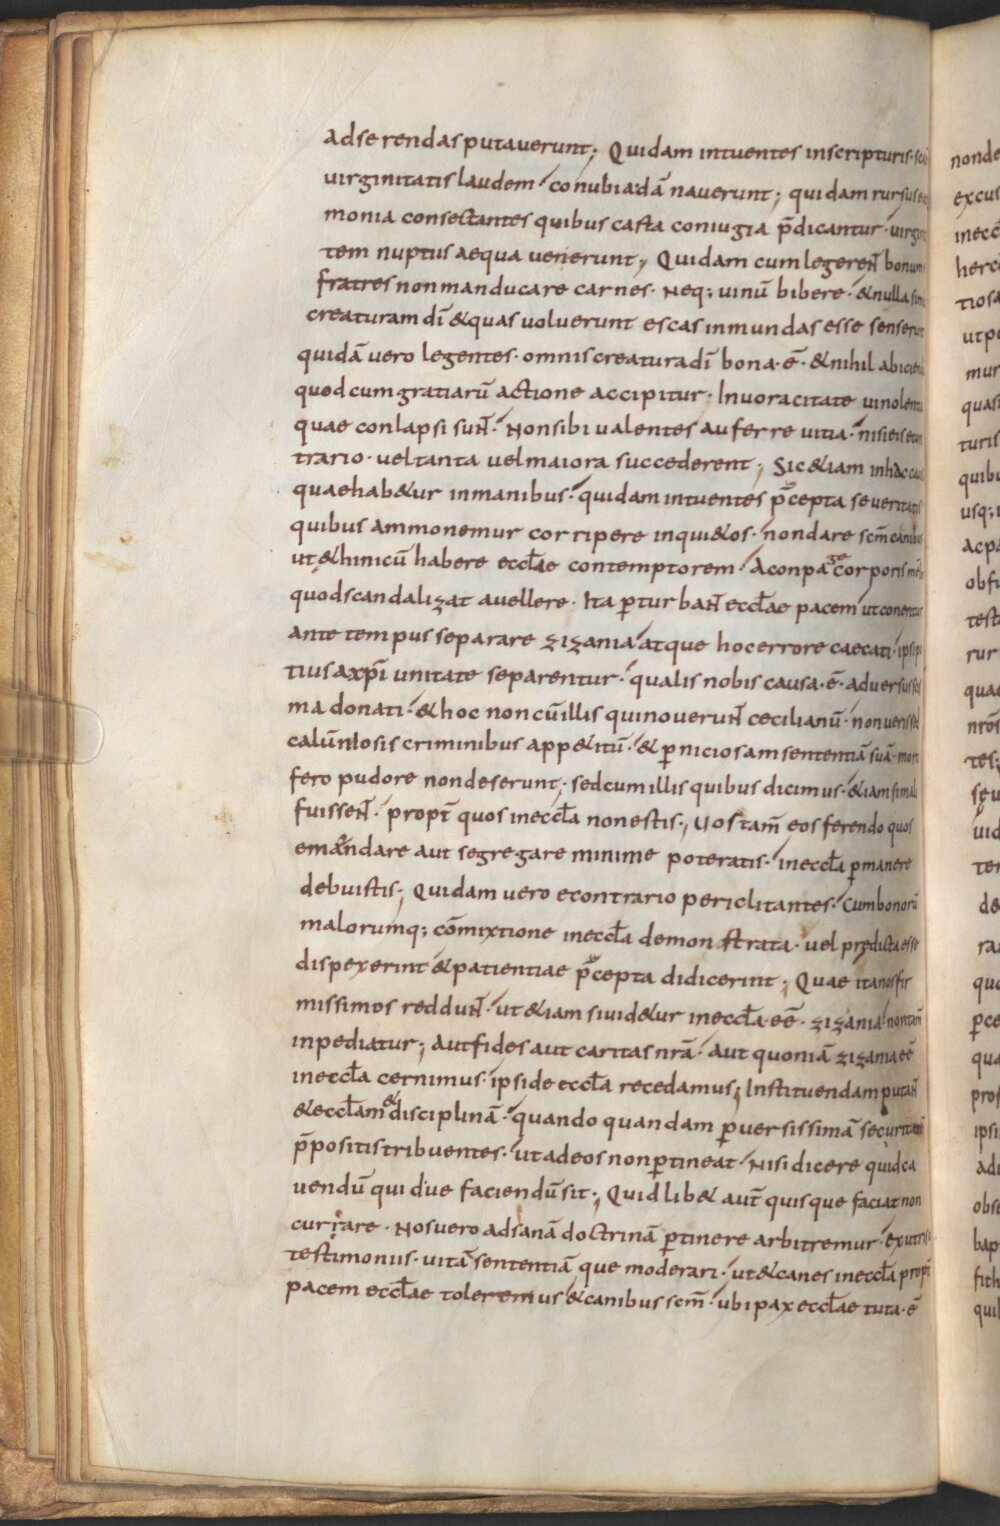 adserendas putaverunt; Quidam intuentes inscripturis·
virginitatis laudem conubia dānaverunt; quidam rursus
monia consectantes quibus casta coniugia p̄dicantur· virgini
tem nuptiis aequaverierunt; Quidam cum legereñ bonum
fratres non manducare carnes· Neq; uinū bibere· & nulla
creaturam dī & quas voluerunt escas inmundas esse senserunt
quidā vero legentes· omnis creatura dī bona·ē· & nihil abiciend
quod cum gratiarū actione accipitur· In voracitate vinolenti
quae conlapsi suñ· Non sibi valentes auferre vitia· nisi eis econ
trario· vel tanta vel maiora succederent; Sic &iam in hac
quae hab&ur in manibus· quidam intuentes p̄cepta severitatis
quibus ammonemur corripere inqui&os· non dare scm̄ canibus
ut &hinicū habere eccl̄ae contemptorem· Aconpage corporis
quod scandalizat avellere· Ita p̱turbañ eccl̄ae pacem ut conentur
ante tempus separare zizania atque hoc errore caecati· ipsi po
tius a xp̄i unitate separentur· qualis nobis causa·ē· adversus
ma donati· & hoc non cū illis qui noveruñ cecilianū· non veris sed
calūniosis criminibus app&itū· & p̱niciosam sententiā suā· mor
fero pudore non deserunt; sed cum illis quibus dicimus· &iam si mali
fuisseñ· propt̄ quos in eccl̄a non estis; Uos tam̄ eos ferendo quos
emandare aut segregare minime poteratis· in eccl̄a p̱manere
debuistis; Quidam vero econtrario periclitantes· Cum bonorū
malorumq; cōmixtione in eccl̄a demonstrata· vel prędicta esse
dispexerint & patientiae p̄cepta didicerint; Quae ita nos fir
missimos redduñ· ut &iam si vid&ur in eccl̄a·eē· zizania· non tam̄
inpediatur; Aut fides aut caritas nr̄a· Aut quoniā zizania eē
in eccl̄a cernimus· ipsi de eccl̄a recedamus; Instituendam putañ
& eccl̄am & disciplinā· quando quandam p̱versissimā securitatē
p̄positis tribuentes· ut ad eos non p̱tineat· Nisi dicere quid ca
vendū quidve faciendū sit; Quidlib& aut̄ quisque faciat non
curare· Nos vero ad sanā doctrinā p̱tinere arbitremur· ex utris
testimoniis· vitā sententiāque moderari· ut & canes in eccl̄a propt̄
pacem eccl̄ae toleremus & canibus scm̄· ubi pax eccl̄ae tuta·ē